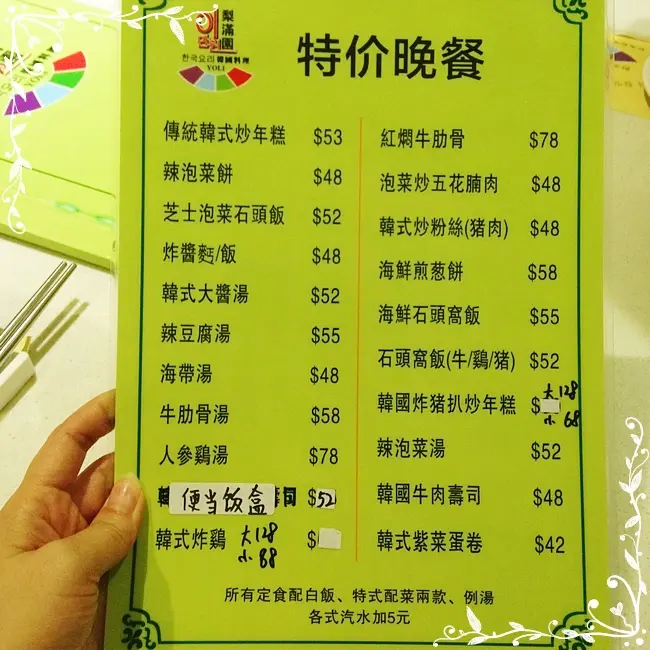 梨滿園
한국요리 韓國料理
YOLI
特价晚餐
傳統韓式炒年糕 $53
辣泡菜餅 $48
芝士泡菜石頭飯 $52
炸醬麵/飯 $48
韓式大醬湯 $52
辣豆腐湯 $55
海帶湯 $48
牛肋骨湯 $58
人參鷄湯 $78
便当饭盒 $52
韓式炸鷄 大128 $
小88
紅燜牛肋骨 $78
泡菜炒五花腩肉 $48
韓式炒粉絲(猪肉) $48
海鮮煎葱餅 $58
海鮮石頭窩飯 $55
石頭窩飯(牛/鷄/猪) $52
韓國炸猪扒炒年糕 $ 大128
小68
辣泡菜湯 $52
韓國牛肉壽司 $48
韓式紫菜蛋卷 $42
所有定食配白飯、特式配菜兩款、例湯
各式汽水加5元